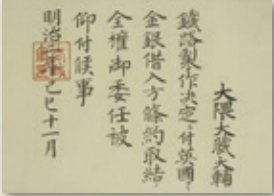 大隈大蔵大輔
鐵路製作決定ニ付英國ニ
金銀借入方條約取結
全權御委任被
仰付候事
明治二年己巳十一月